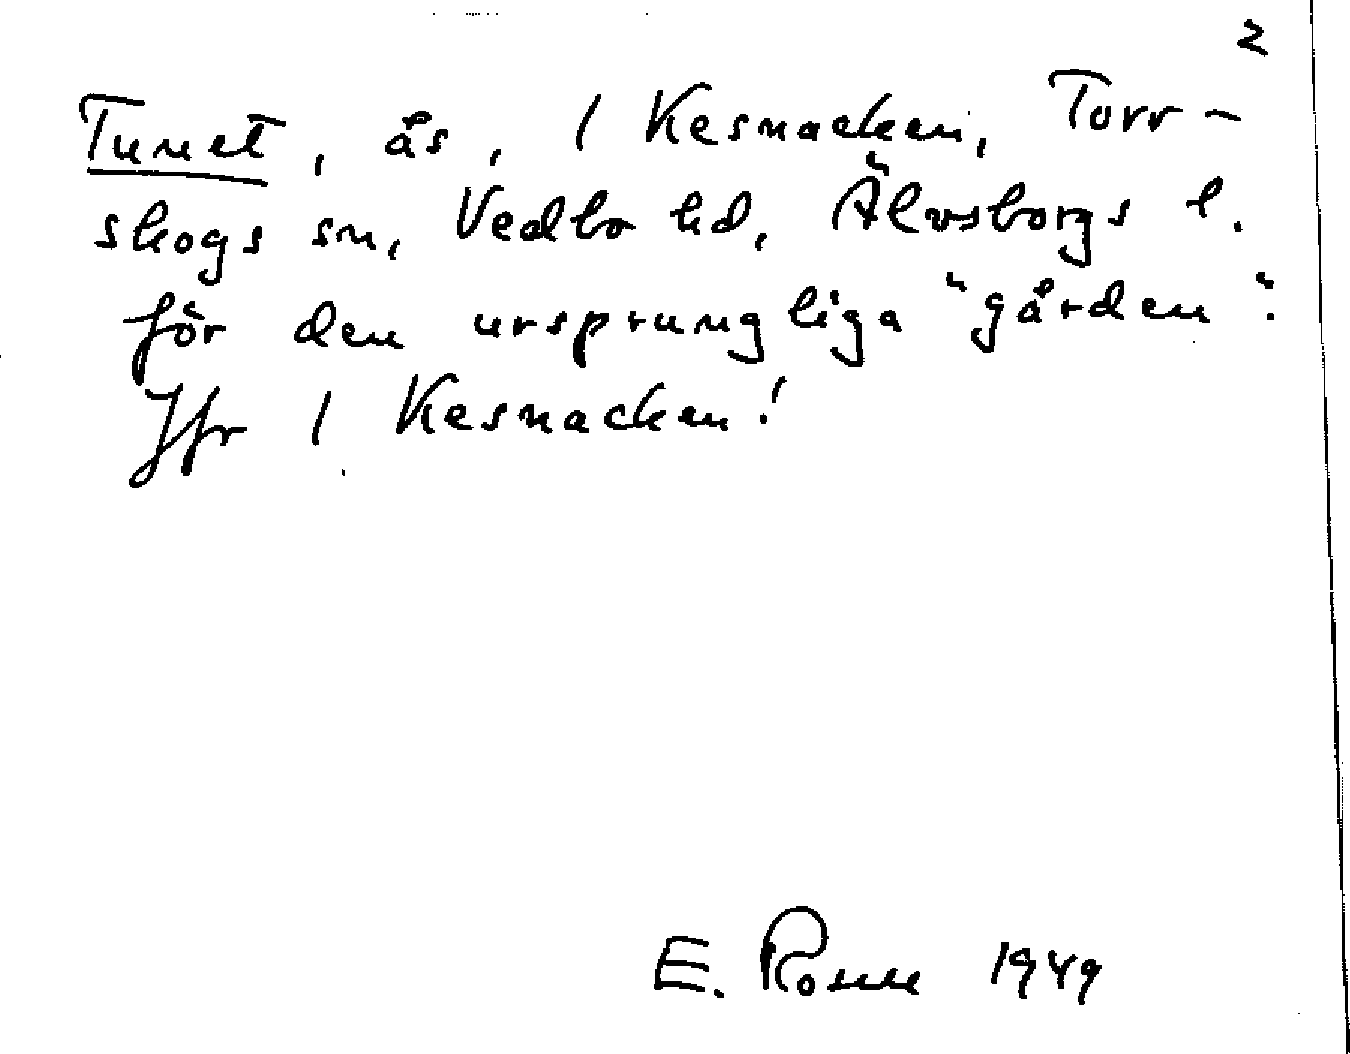 2
Tunet, ås, 1 Kesnacken, Torr-
skogs sn, Vedbo hd, Älvsborgs l.
för den ursprungliga "gården".
Jfr 1 Kesnacken!
E. Rosell 1949